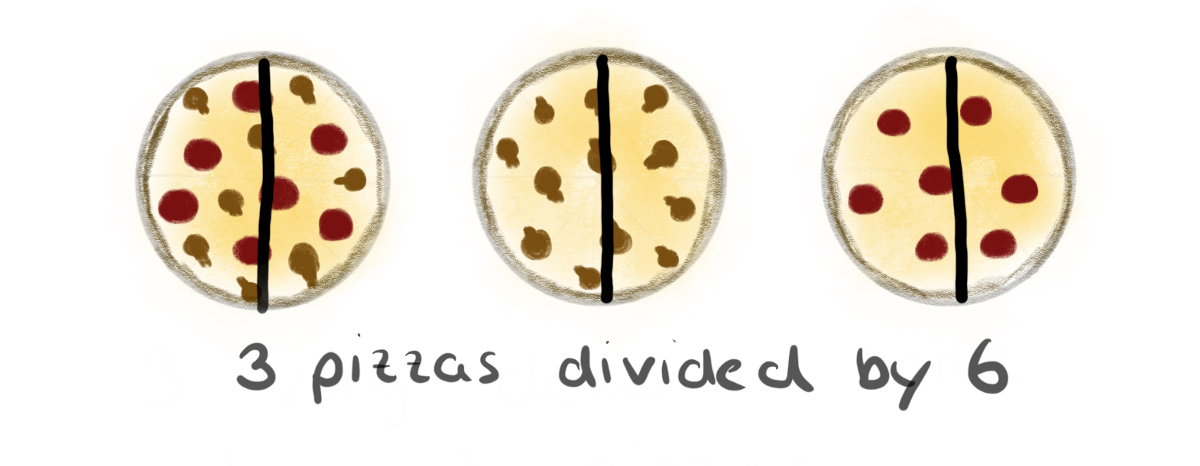 3 pizzas divided by 6